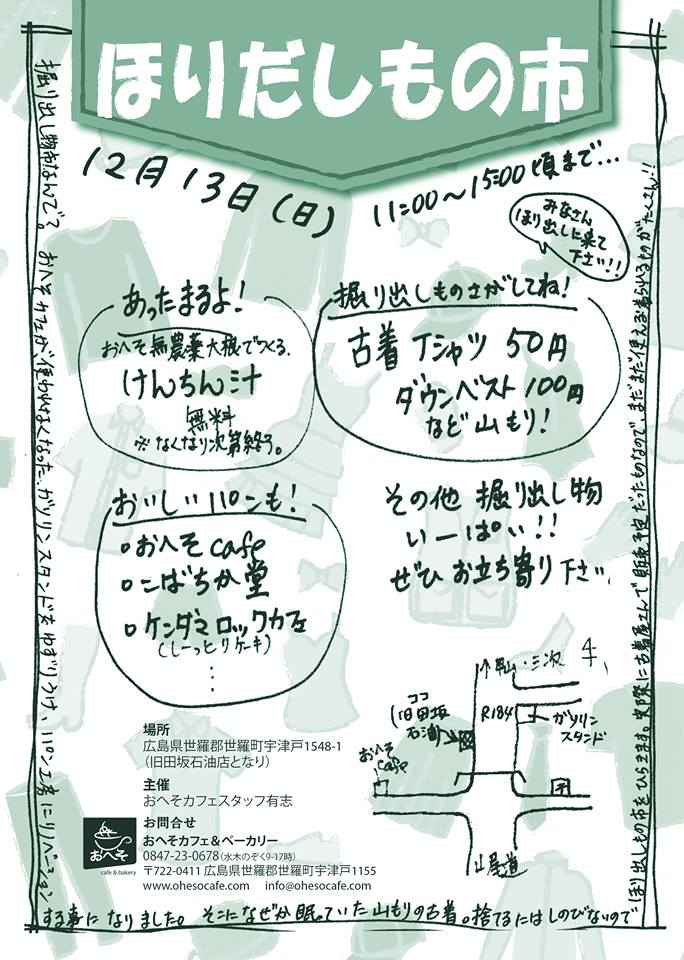 ほりだしもの市
12月13日(日)
11:00〜15:00頃まで…
みなさん
ほり出しに来て
下さい!!
あったまるよ!
おへそ無農薬大根でつくる、
けんちん汁
無料
※なくなり次第終了。
掘り出しものさがしてね!
古着 Tシャツ 50円
ダウンベスト 100円
など 山もり!
おいしいパンも!
おへそcafe
こばちか堂
ケンダマロックカフェ
(しーっとりケーキ)
⋮
その他 掘り出し物
いーぱい!!
ぜひ お立ち寄り下さい
場所
広島県世羅郡世羅町宇津戸1548-1
(旧田坂石油店となり)
主催
おへそカフェスタッフ有志
お問合せ
おへそカフェ&ベーカリー
0847-23-0678(水木のぞく9-17時)
〒722-0411 広島県世羅郡世羅町宇津戸1155
www.ohesocafe.com info@ohesocafe.com
おへそ
cafe & bakery
↑甲山・三次
ココ
(旧田坂
石油)
R184
ガソリン
スタンド
おへそ
cafe
↓尾道
掘り出し物市なんで?。おへそカフェが、使われなくなった、ガソリンスタンドをゆずりうけ、パン工房にリノベーション
する事になりました。そこになぜか眠っていた山もりの古着。捨てるにはしのびないので
ほり出しもの市をひらきます。実際に古着屋さんで販売予定だったものなので、まだまだ使える着られるものがたくさん!!